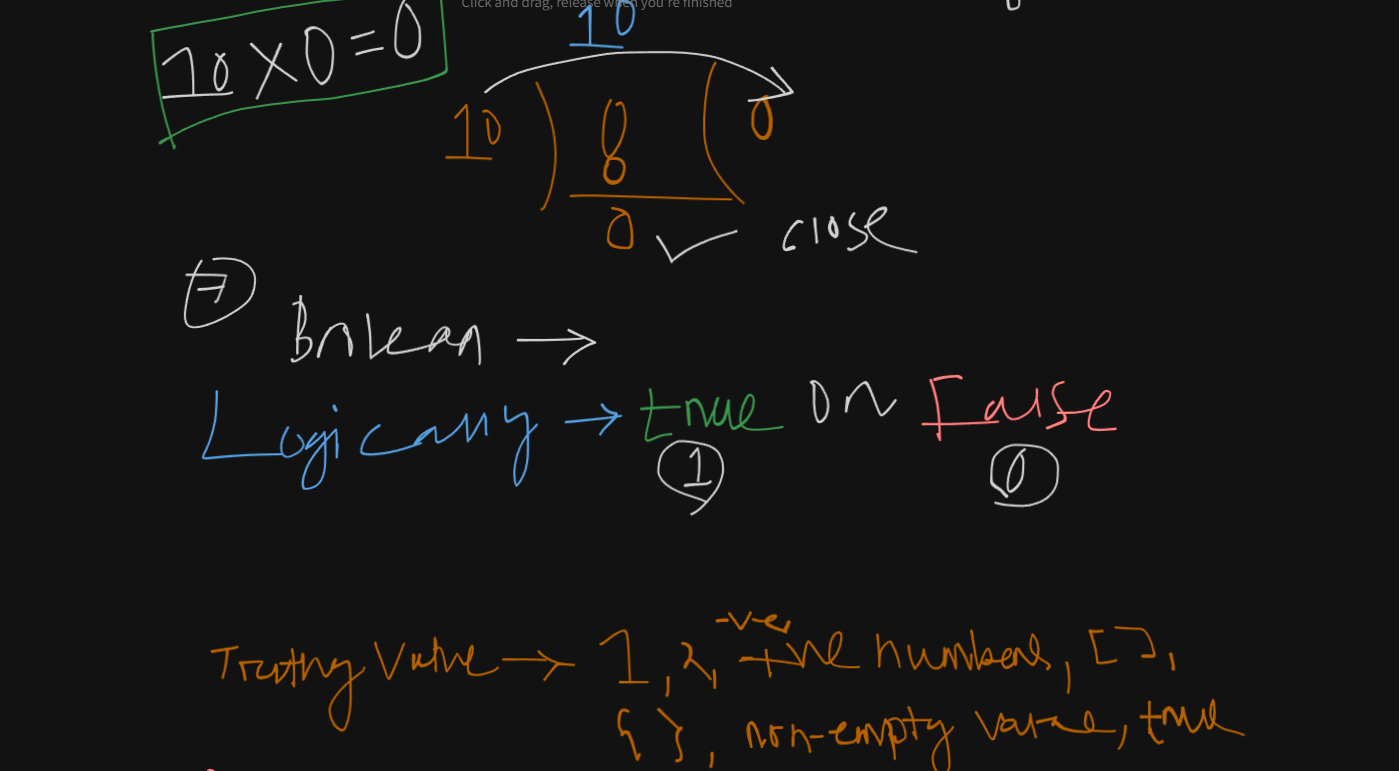 Click and drag, release when you're finished
10
10 X 0 = 0
10 ) 0 ( 0
0
0 ✓ close
7
Boolean →
Logically → true or False
1 0
-ve,
Truthy Value → 1, 2, +ve numbers, [ ],
{ }, non-empty value, true